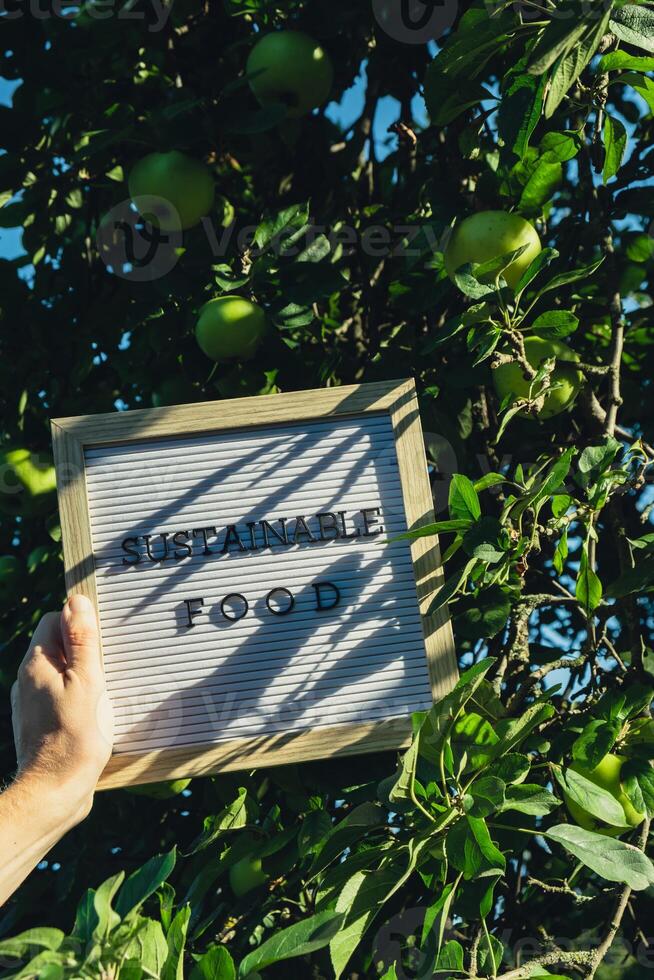 SUSTAINABLE
FOOD
Vecteezy